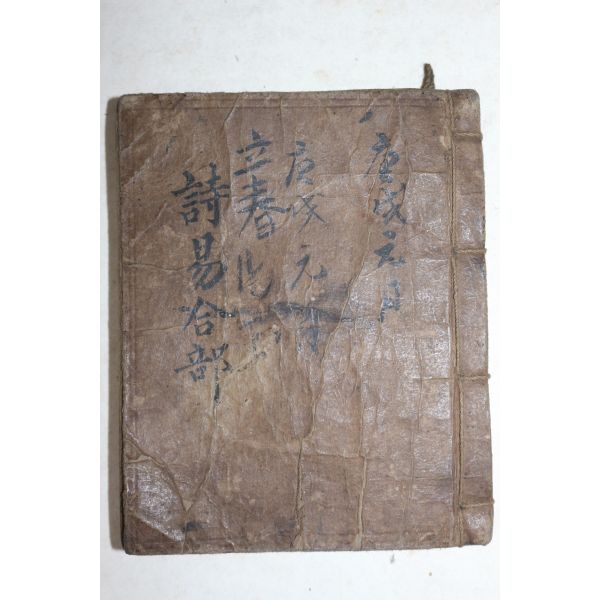 庚戌元月
庚戌元
立春
詩易合部